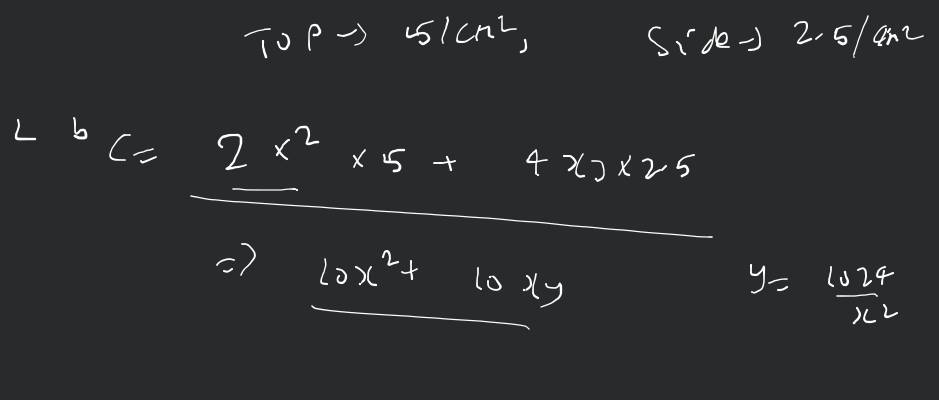 TOP → 5/cm², Side → 2.5/cm²
L b C = 2x² × 5 + 4xy × 2.5
⇒ 10x² + 10xy y = 1024/x²